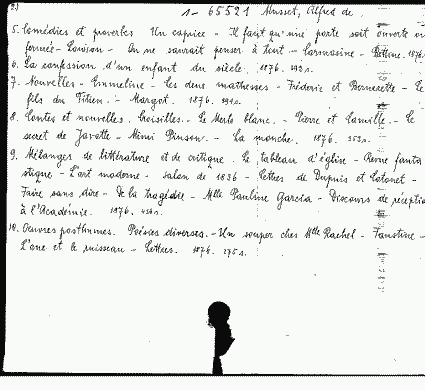 2) 1-65521 Musset, Alfred de
5. Comédies et proverbes Un caprice - Il faut qu'une porte soit ouverte ou
fermée - Louison - On ne saurait penser à tout - Carmosine - Bettine. 1876
6. La confession d'un enfant du siècle. 1876.
7. Nouvelles - Emmeline - Les deux maîtresses - Fréderic et Bernerette - Le
fils du Titien. - Margot. 1876.
8. Contes et nouvelles. Croisilles. - Le Merle blanc. - Pierre et Camille. - Le
secret de Javotte - Mimi Pinson. - La mouche. 1876.
9. Mélanges de littérature et de critique. Le tableau d'église - Revue fantas
stique - L'art moderne - Salon de 1836 - Lettres de Dupuis et Cotonet -
Faire sans dire - De la tragédie - Mlle Pauline Garcia - Discours de réception
à l'Académie. 1876.
10. Oeuvres posthumes. Poésies diverses. - Un souper chez Mlle Rachel - Faustine -
L'âne et le ruisseau - Lettres. 1876. 275 s.